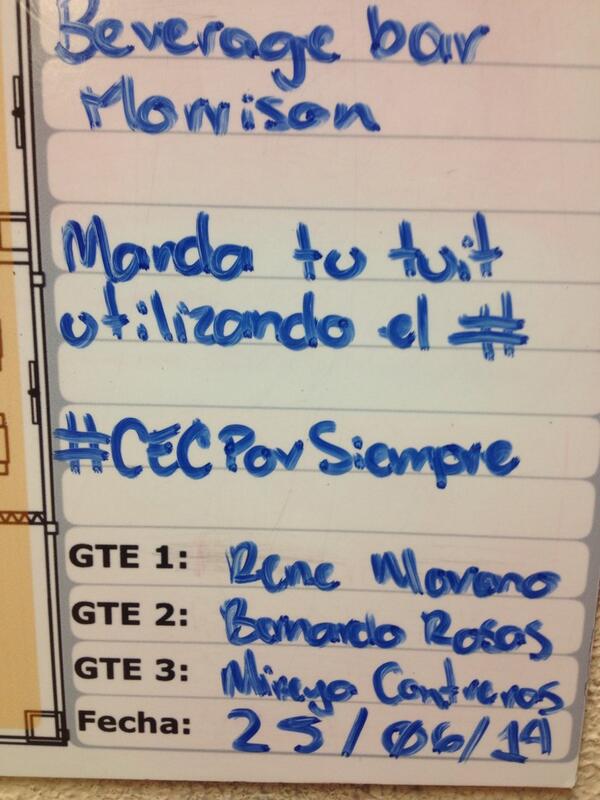 Beverage bar
Morrison
Manda tu tuit
utilizando el #
#CECPorSiempre
GTE 1: Rene Moreno
GTE 2: Bernardo Rosas
GTE 3: Mireya Contreras
Fecha: 25/06/14